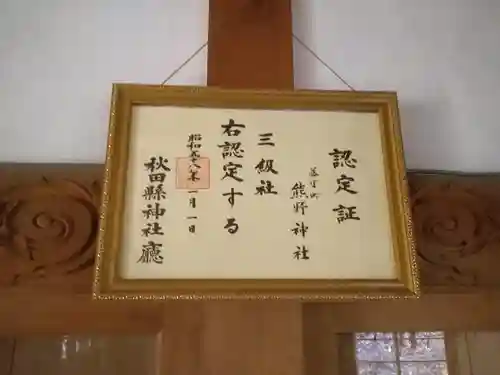 認定証
熊野神社
三級社
右認定する
昭和五十八年一月一日
秋田縣神社廳